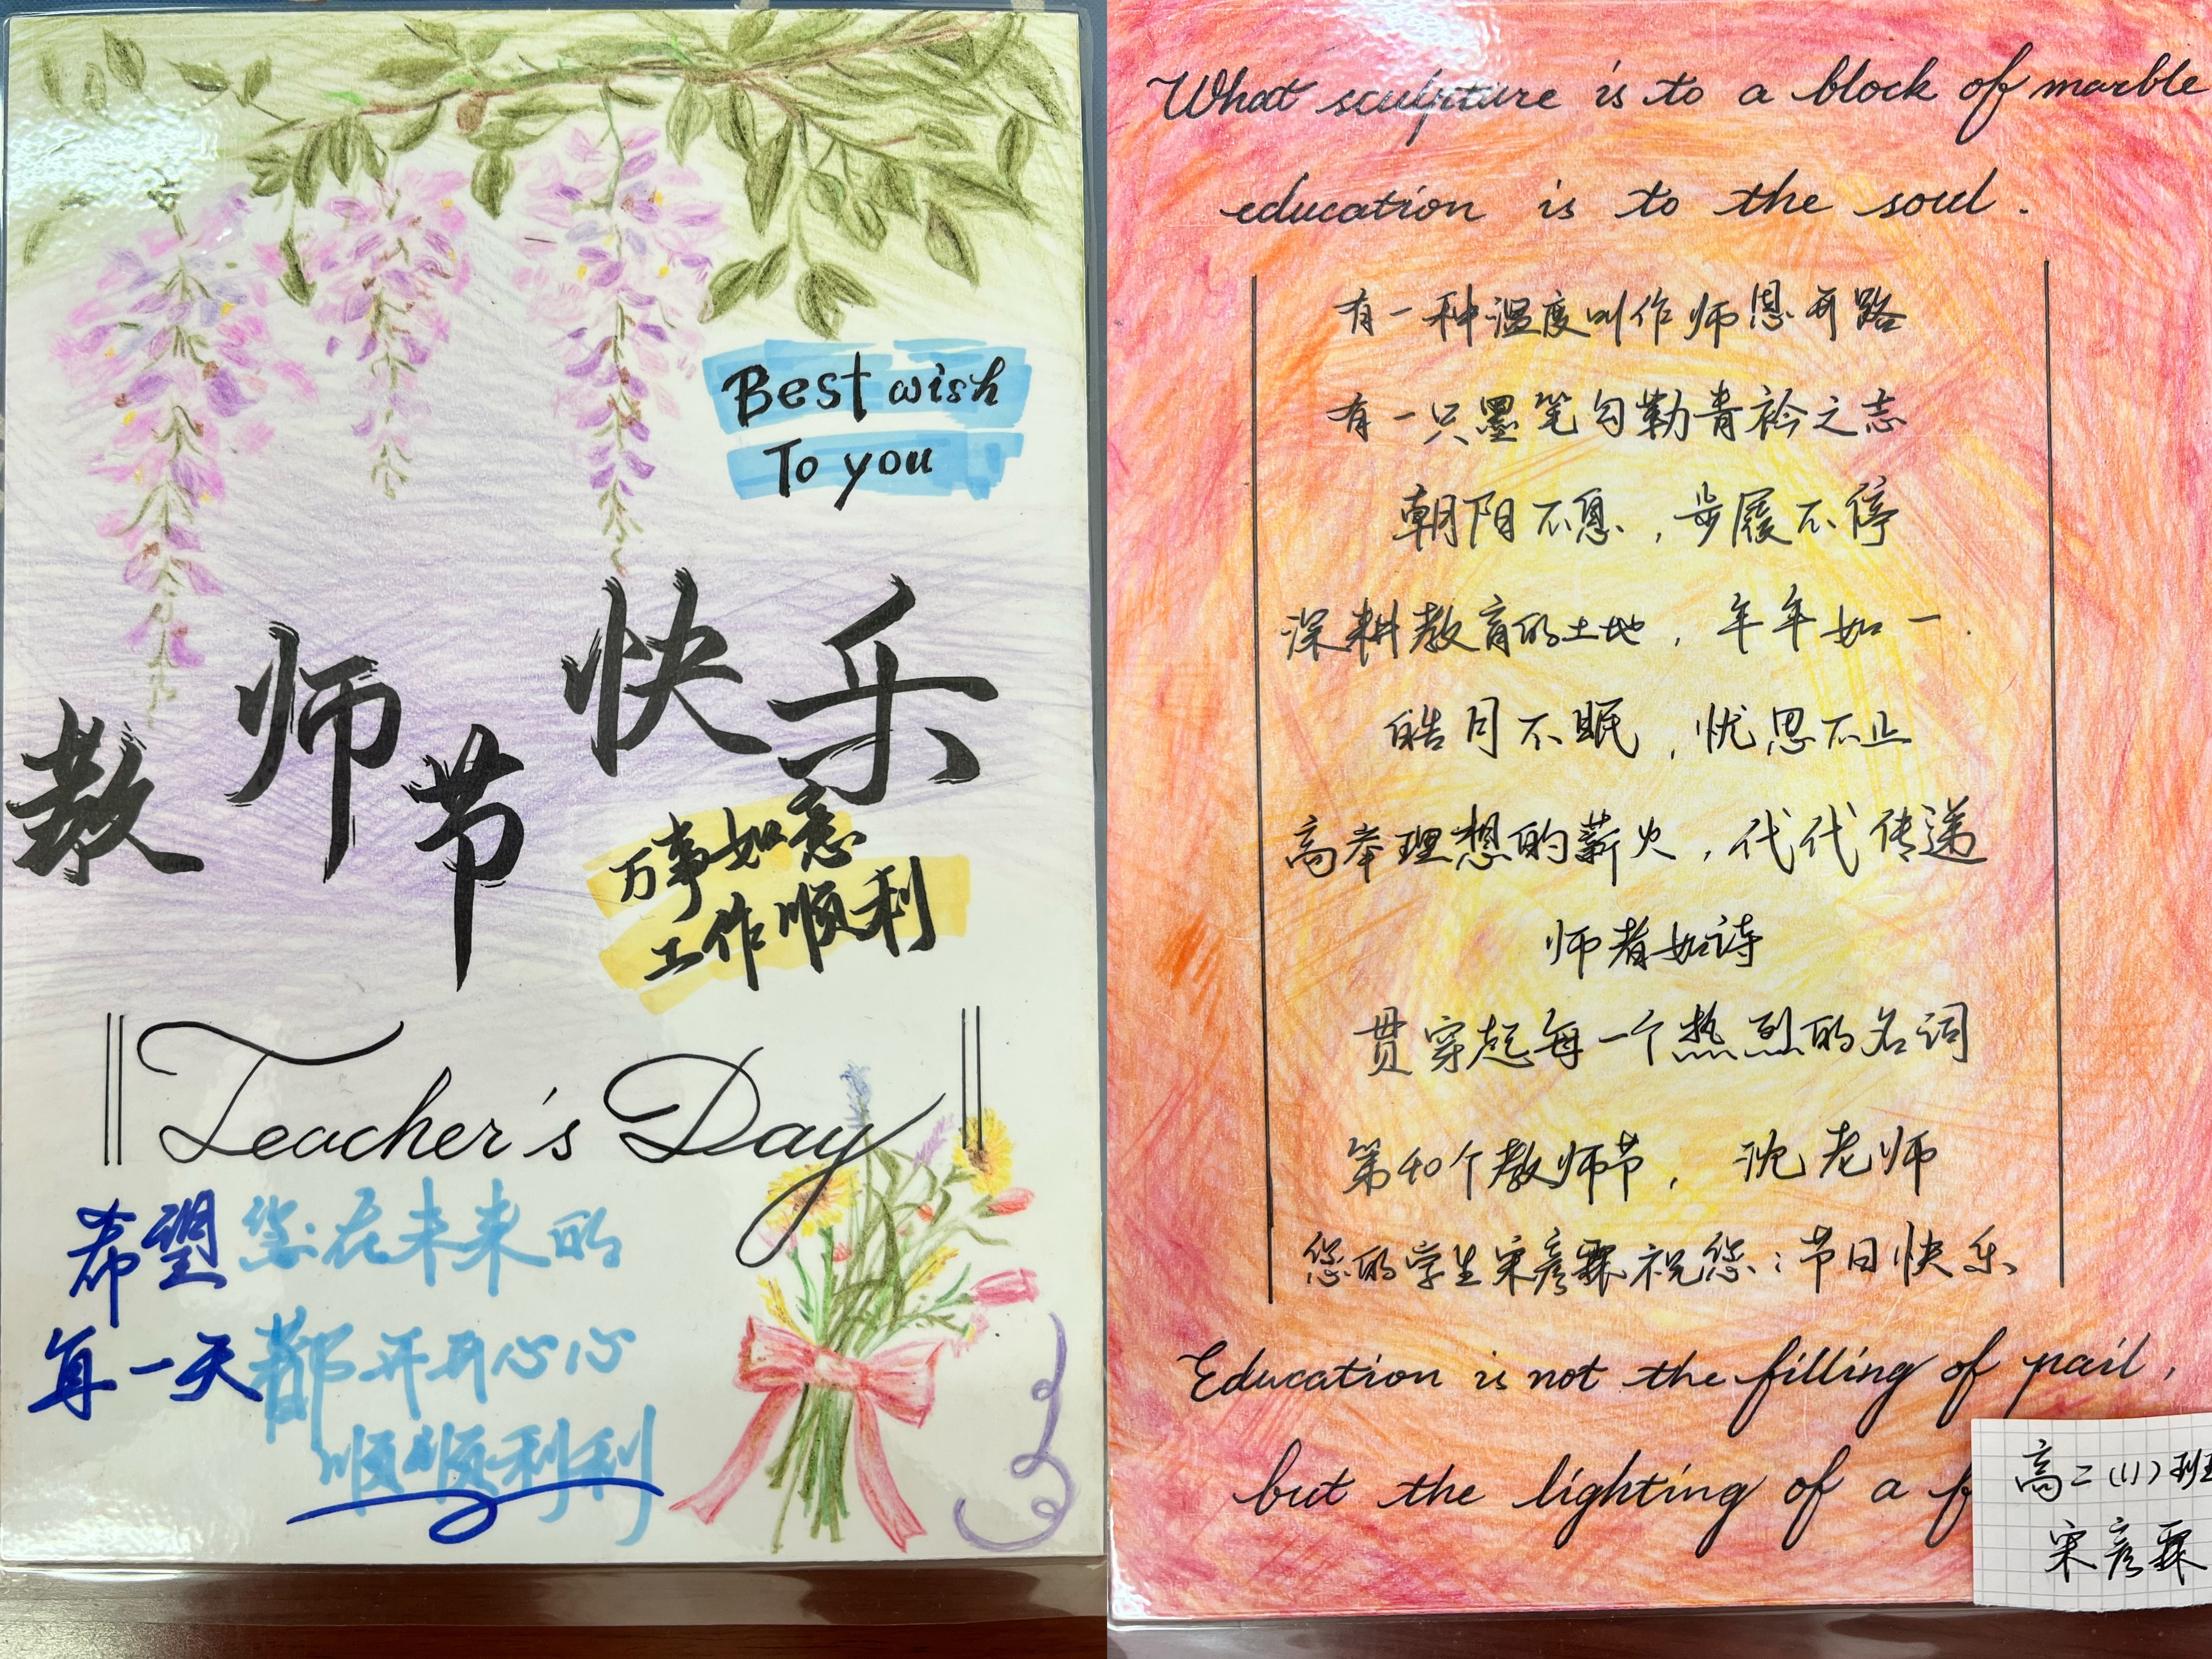 Best wish
To you
教师节快乐
万事如意
工作顺利
Teacher's Day
希望您在未来的
每一天都开开心心
顺顺利利
What sculpture is to a block of marble
education is to the soul.
有一种温度叫作师恩开路
有一只墨笔勾勒青衿之志
朝阳不息，步履不停
深耕教育的土地，年年如一.
皓月不眠，忧思不止
高举理想的薪火，代代传递
师者如诗
贯穿起每一个热烈的名词
第40个教师节，沈老师
您的学生宋彦霖祝您：节日快乐
Education is not the filling of pail,
but the lighting of a
高二(11)班
宋彦霖